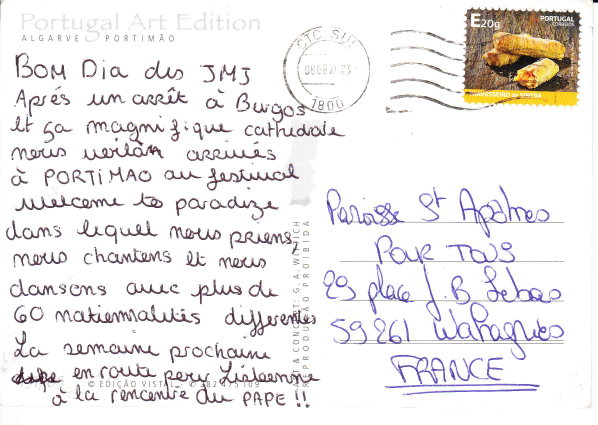 Portugal Art Edition
ALGARVE PORTIMÃO
BOM Dia des JMJ
Aprés un arrêt à Burgos
et sa magnifique cathedrale
nous voilà arrivés
à PORTIMAO au festival
Welcome to paradize
dans lequel nous prions,
nous chantons et nous
dansons avec plus de
60 nationnalités differentes
La semaine prochaine
en route pour Lisbonne
à la rencontre du PAPE !!
© EDIÇÃO VISTAL
REPRODUÇÃO PROIBIDA
CTC SUL
1800
E20g
PORTUGAL
CORREIOS
TRAVESSEIRO de SINTRA
Paroisse St Apôtres
POUR TOUS
29 place J.B Lebas
59261 Wahagnies
FRANCE